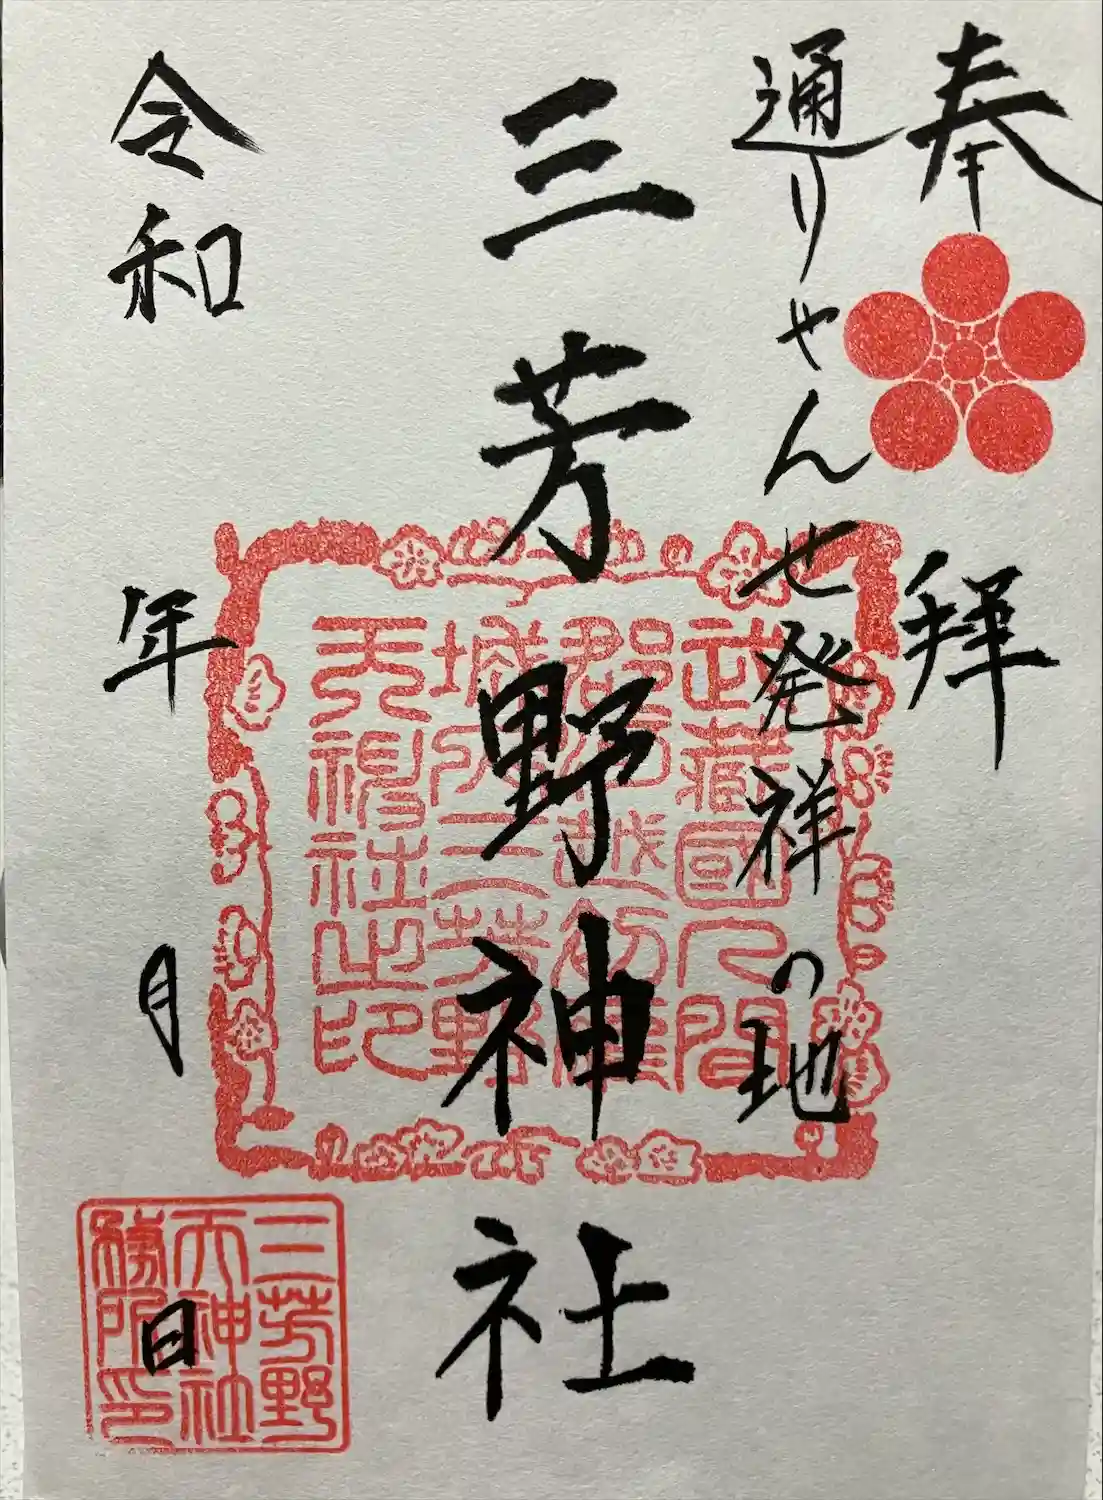 奉拝
通りゃんせ発祥の地
三芳野神社
令和 年 月 日
武藏國入間
郡河越初雁
城内三芳野
天神社之印
三芳野
天神社
務所印